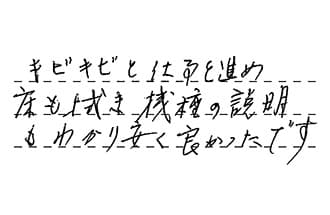 キビキビと仕事を進め
床も上手ま 機種の説明
もわかり安く良かったです